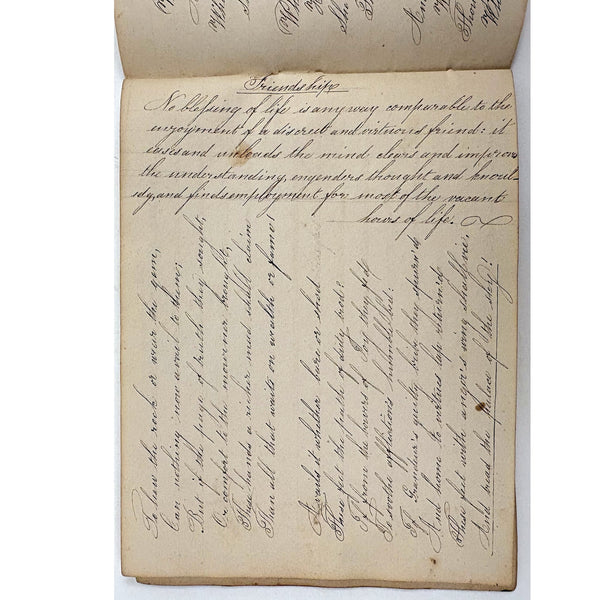 Friendship
No blessing of life is any way comparable to the
enjoyment of a discreet and virtuous friend: it
eases and unloads the mind clears and improves
the understanding, engenders thought and knowl
edg, and finds employment for most of the vacant
hours of life.
To hew the rock or wear the gem,
Can nothing now avail to them;
But if the page of truth they sought,
Or comfort to the mourner brought,
These hands a richer mead shall claim
Than all that waits on wealth or fame!
Avails it whether bare or shod
These feet the path of duty trod?
If from the bowers of Joy they fled
To soothe affliction's humble bed:
If Grandeur's guilty bribe they spurn'd
And home to virtues lap return'd
These feet with angel's song shall vie,
And tread the palace of the sky!